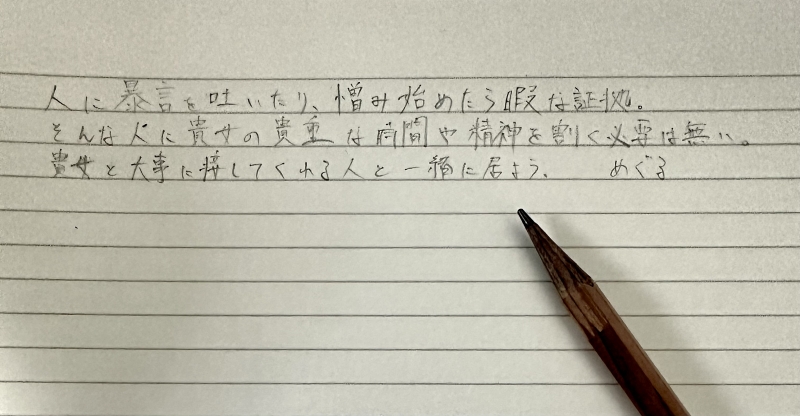 人に暴言を吐いたり、憎み始めたら暇な証拠。
そんな人に貴女の貴重な時間や精神を割く必要は無い。
貴女と大事に接してくれる人と一緒に居よう。 めぐる